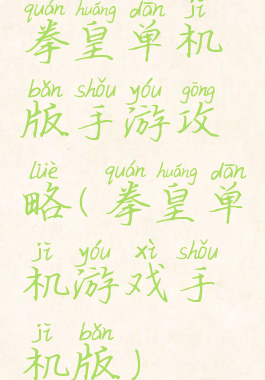 quán huáng dān jī
拳皇单机
bǎn shǒu yóu gōng
版手游攻
lüè quán huáng dān
略(拳皇单
jī yóu xì shǒu
机游戏手
jī bǎn
机版)